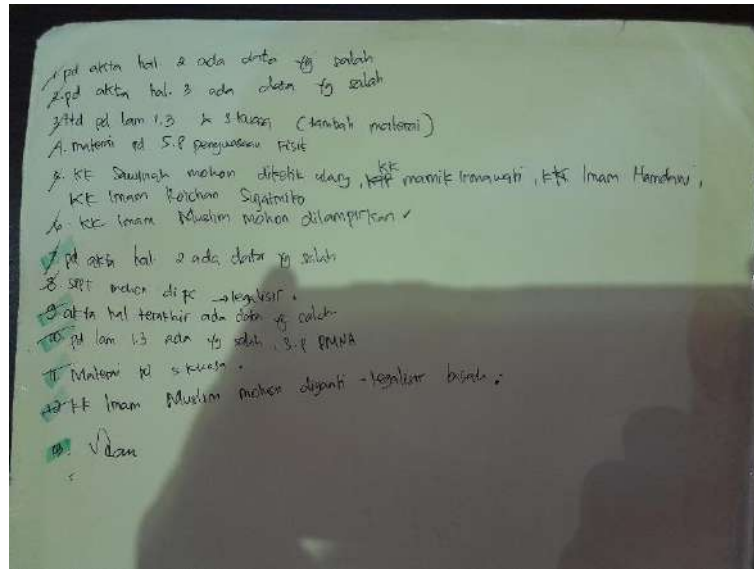 1. pd akta hal. 2 ada data yg salah
2. pd akta hal. 3 ada data yg salah
3. ttd pd lam 1.3 & S kuasa (tambah materai)
4. materai pd S.P penguasaan Fisik
5. KK Sawinah mohon diketik ulang, KK mamik Irmawati, KK Imam Hamdani,
KK Imam Roichan Sujatmiko
6. KK Imam Muslim mohon dilampirkan ✓
7. pd akta hal. 2 ada data yg salah
8. SPPT mohon di fc → legalisir.
9. akta hal terakhir ada data yg salah
10. pd lam 1.3 ada yg salah, S.P PMNA
11. Materai pd S kuasa.
12. KK Imam Muslim mohon diganti - legalisir basah.
13.